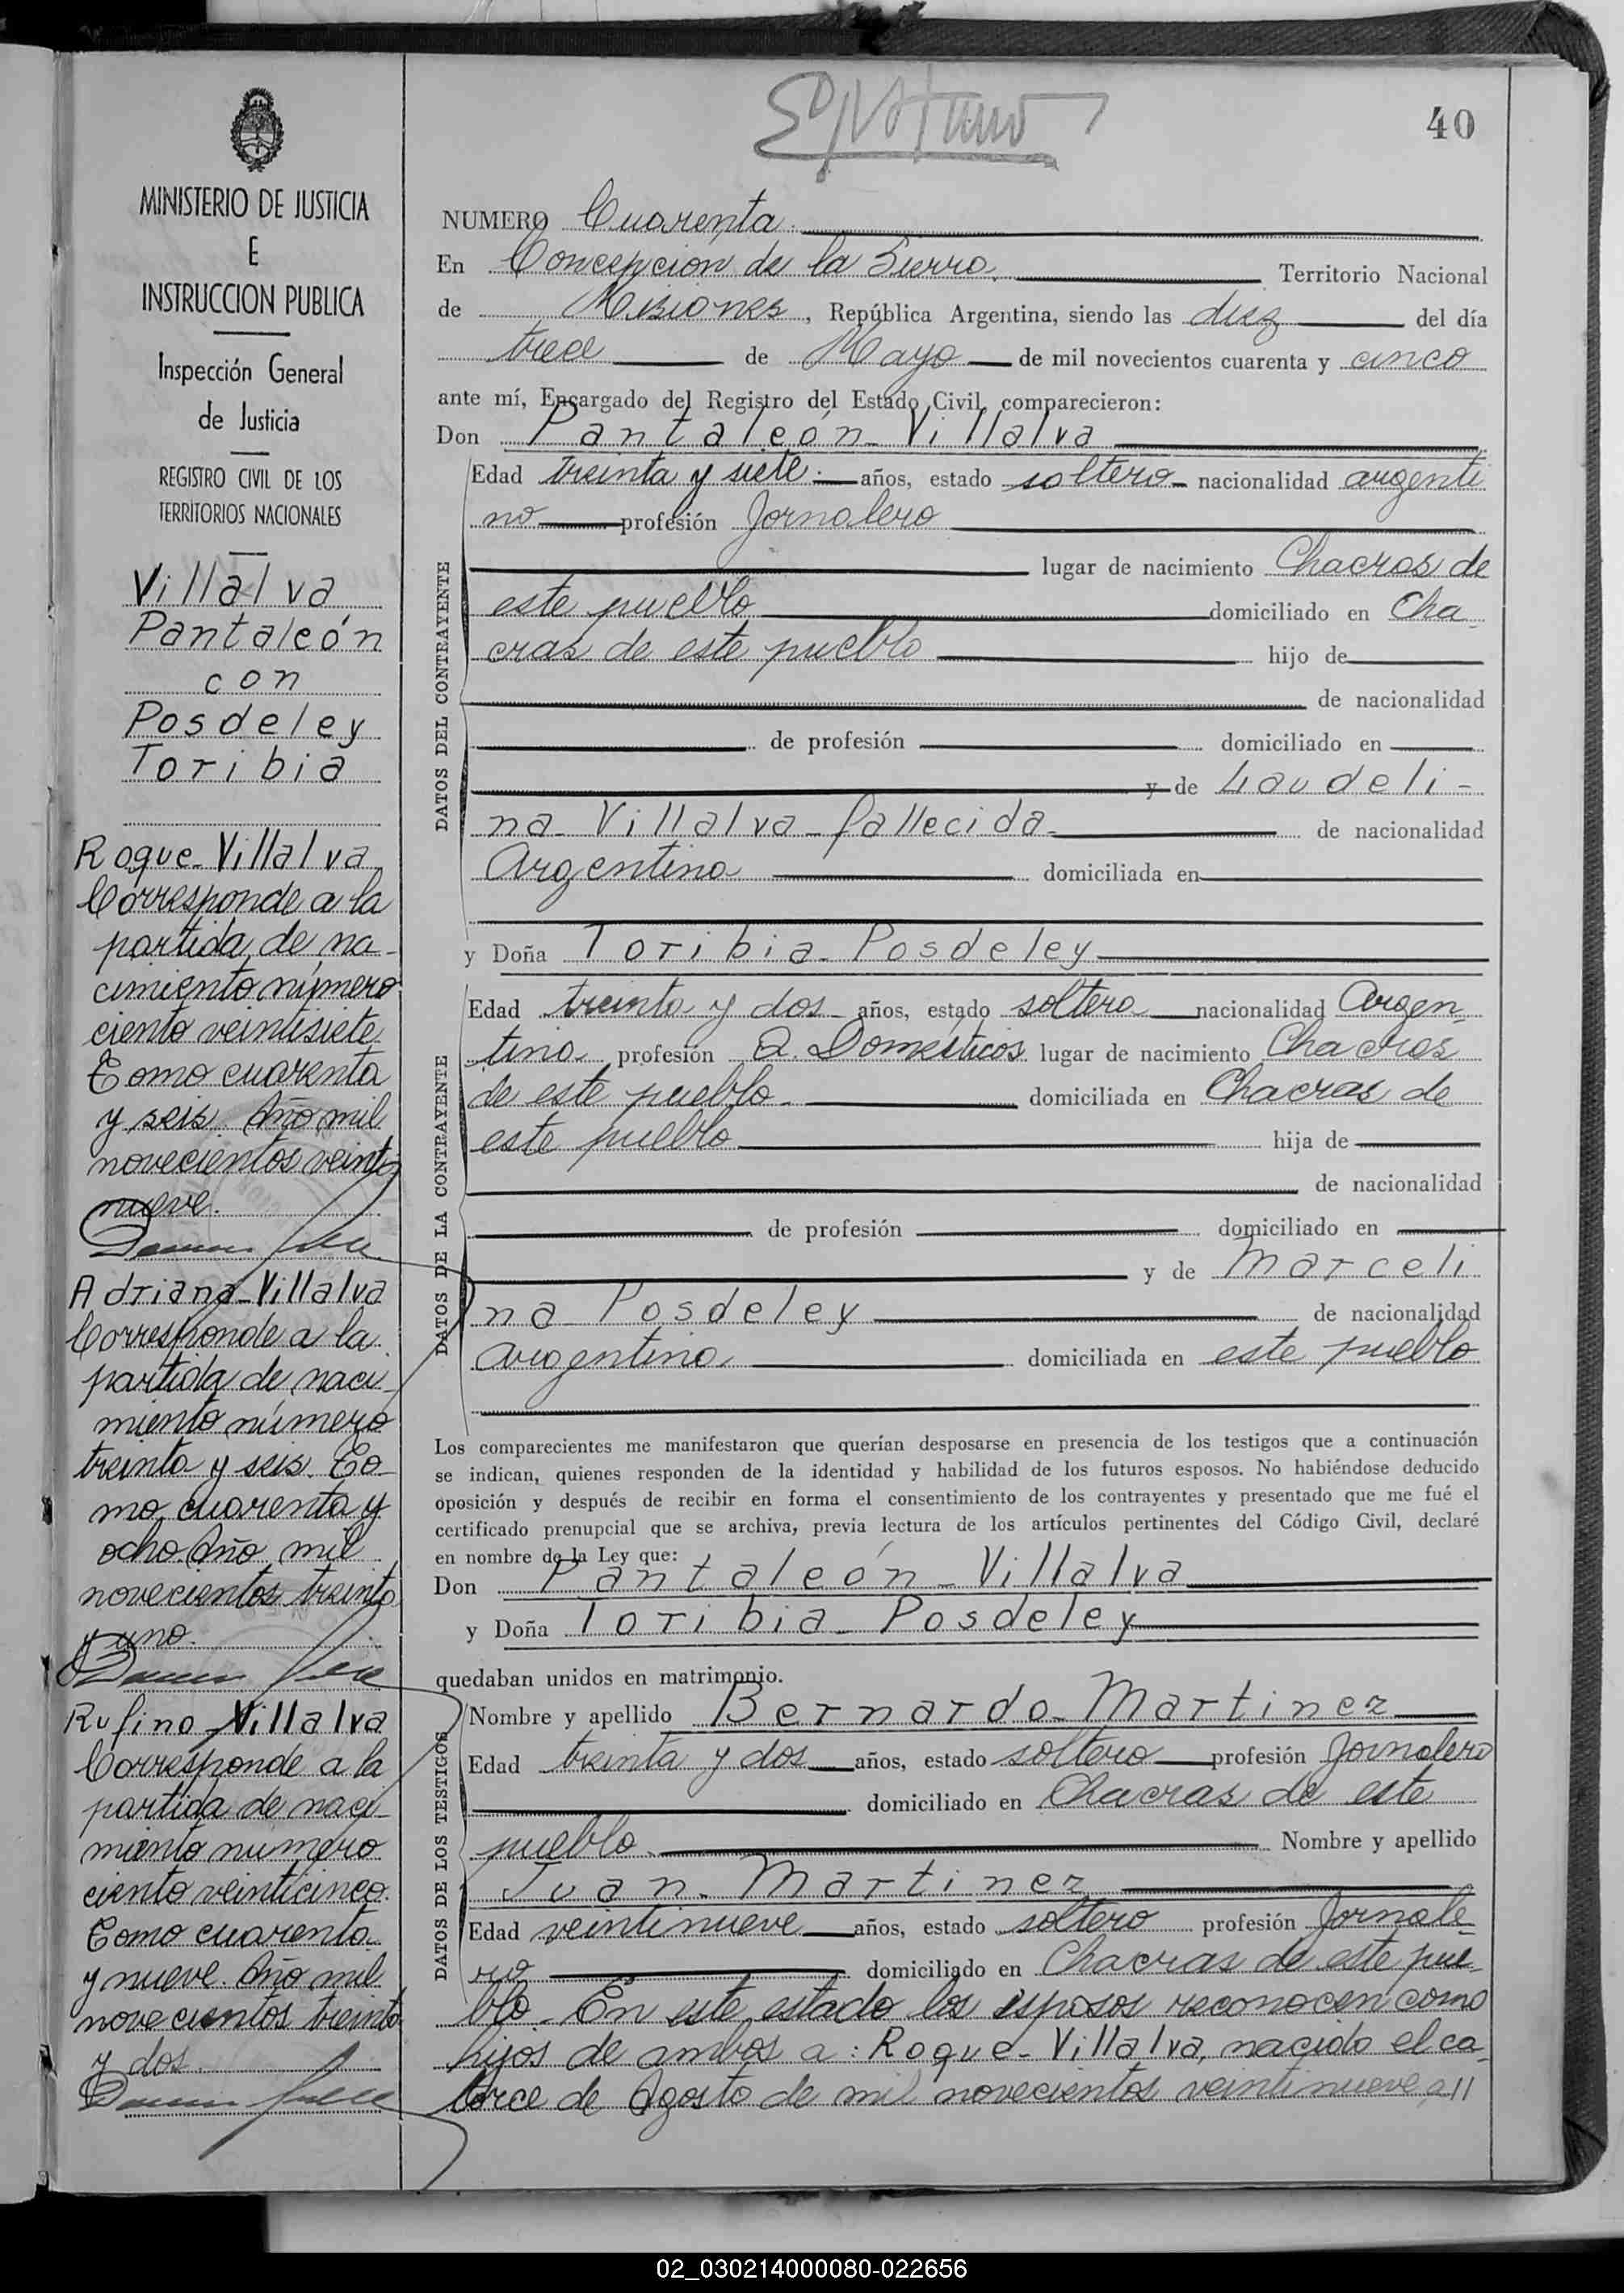 40
MINISTERIO DE JUSTICIA
E
INSTRUCCION PUBLICA
Inspección General
de Justicia
REGISTRO CIVIL DE LOS
TERRITORIOS NACIONALES
Villalva
Pantaleón
con
Posdeley
Toribia
Roque-Villalva
Corresponde a la
partida de na-
cimiento número
ciento veintisiete
Tomo cuarenta
y seis. Año mil
novecientos veinti
nueve.
Adriana-Villalva
Corresponde a la
partida de naci-
miento número
treinta y seis. To-
mo cuarenta y
ocho. Año mil
novecientos treinta
y uno.
Rufino Villalva
Corresponde a la
partida de naci-
miento numero
ciento veinticinco.
Tomo cuarenta
y nueve. Año mil
novecientos treinta
y dos.
NUMERO Cuarenta.
En Concepcion de la Sierra. Territorio Nacional
de Misiones, República Argentina, siendo las diez del día
trece de Mayo de mil novecientos cuarenta y cinco
ante mí, Encargado del Registro del Estado Civil, comparecieron:
Don Pantaleón-Villalva
DATOS DEL CONTRAYENTE
Edad treinta y siete.- años, estado soltero- nacionalidad argenti
no profesión Jornalero
lugar de nacimiento Chacras de
este pueblo domiciliado en Cha-
cras de este pueblo hijo de
de nacionalidad
de profesión domiciliado en
y de Laudeli-
na-Villalva-fallecida- de nacionalidad
Argentina domiciliada en
y Doña Toribia-Posdeley
DATOS DE LA CONTRAYENTE
Edad treinta y dos- años, estado soltera nacionalidad Argen-
tina profesión Q. Domésticos lugar de nacimiento Chacras
de este pueblo- domiciliada en Chacras de
este pueblo hija de
de nacionalidad
de profesión domiciliado en
y de Marceli
na-Posdeley de nacionalidad
argentina domiciliada en este pueblo
Los comparecientes me manifestaron que querían desposarse en presencia de los testigos que a continuación
se indican, quienes responden de la identidad y habilidad de los futuros esposos. No habiéndose deducido
oposición y después de recibir en forma el consentimiento de los contrayentes y presentado que me fué el
certificado prenupcial que se archiva, previa lectura de los artículos pertinentes del Código Civil, declaré
en nombre de la Ley que:
Don Pantaleón-Villalva
y Doña Toribia-Posdeley
quedaban unidos en matrimonio.
DATOS DE LOS TESTIGOS
Nombre y apellido Bernardo-Martinez
Edad treinta y dos años, estado soltero profesión Jornalero
domiciliado en Chacras de este
pueblo. Nombre y apellido
Juan-Martinez
Edad veintinueve años, estado soltero profesión Jornale-
ro domiciliado en Chacras de este pue-
blo.- En este estado los esposos reconocen como
hijos de ambos a: Roque-Villalva, nacido el ca-
torce de Agosto de mil novecientos veintinueve, a//
02_030214000080-022656